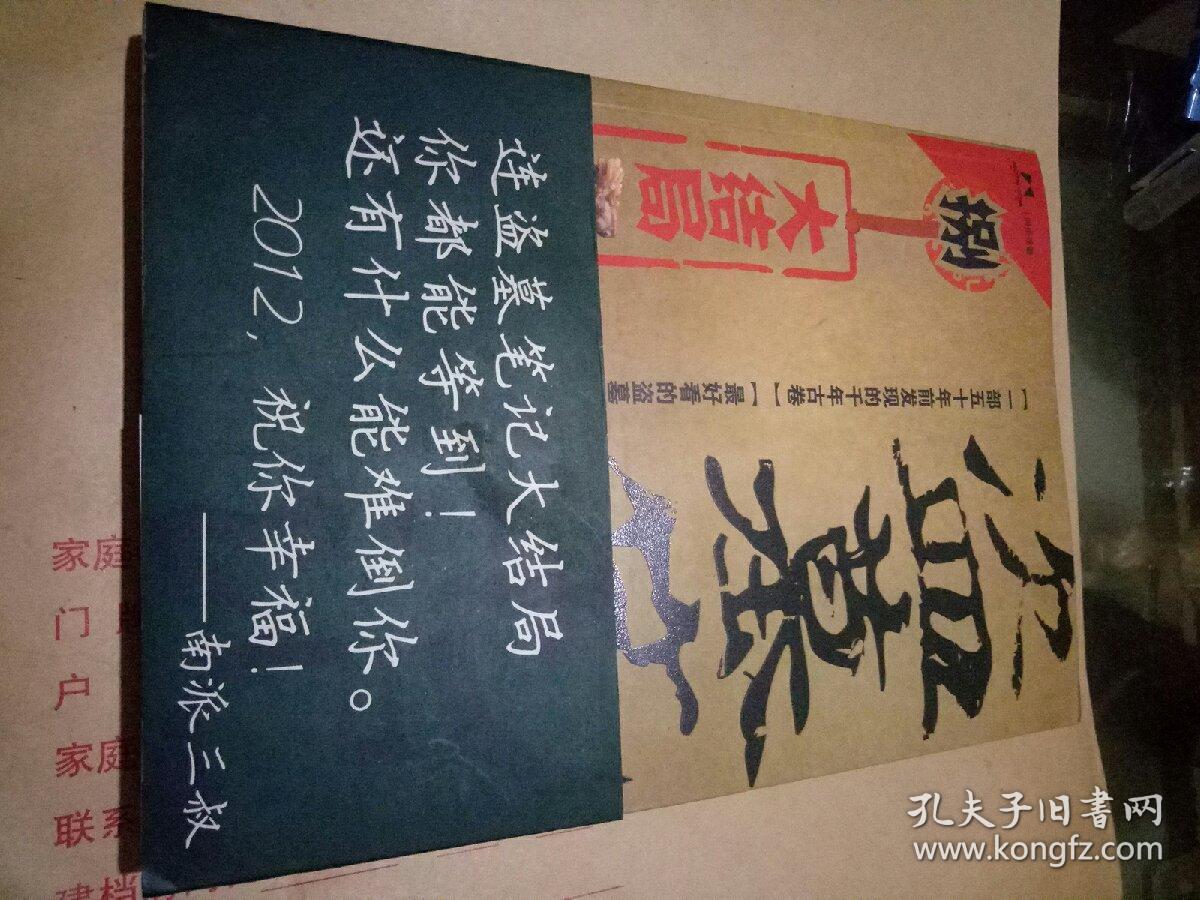 连盗墓笔记大结局
你都能等到！
还有什么能难倒你。
2012，祝你幸福！
——南派三叔
捌
大结局
【一部五十年前发现的千年古卷】
【最好看的盗墓
盗墓
家庭
门
户
家庭
联系
建档
孔夫子旧书网
www.kongfz.com